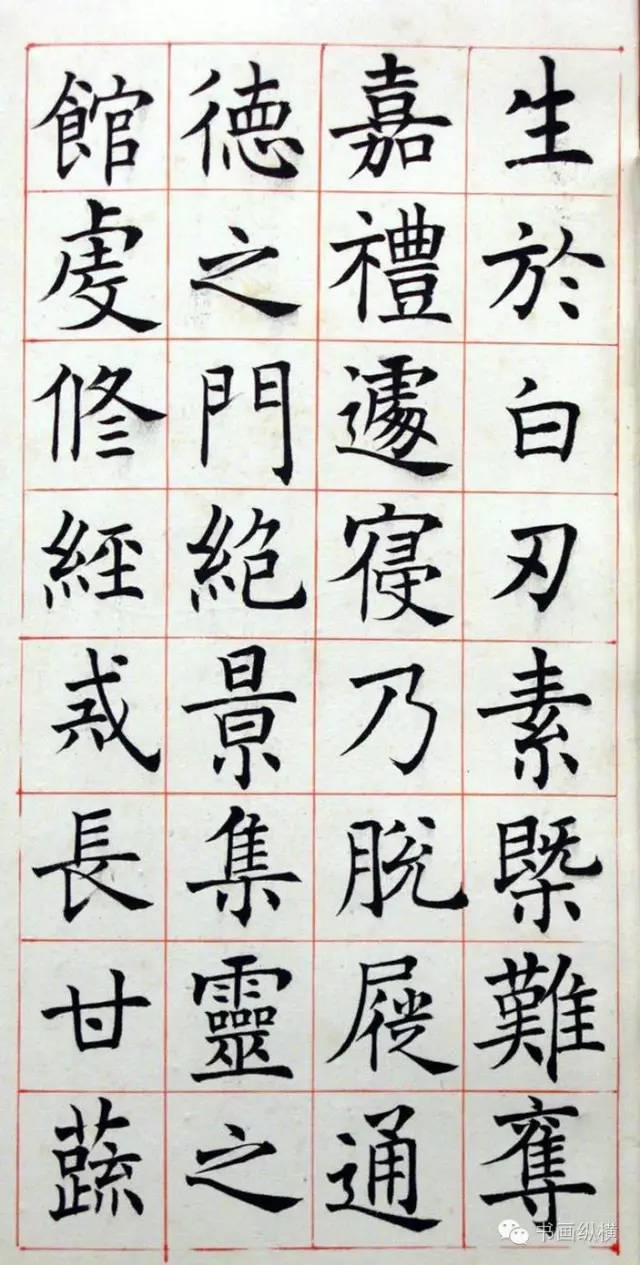 生於白刃素槩難奪
嘉禮遽寑乃脫屣通
德之門絕景集靈之
館虔修經戒長甘蔬
书画纵横